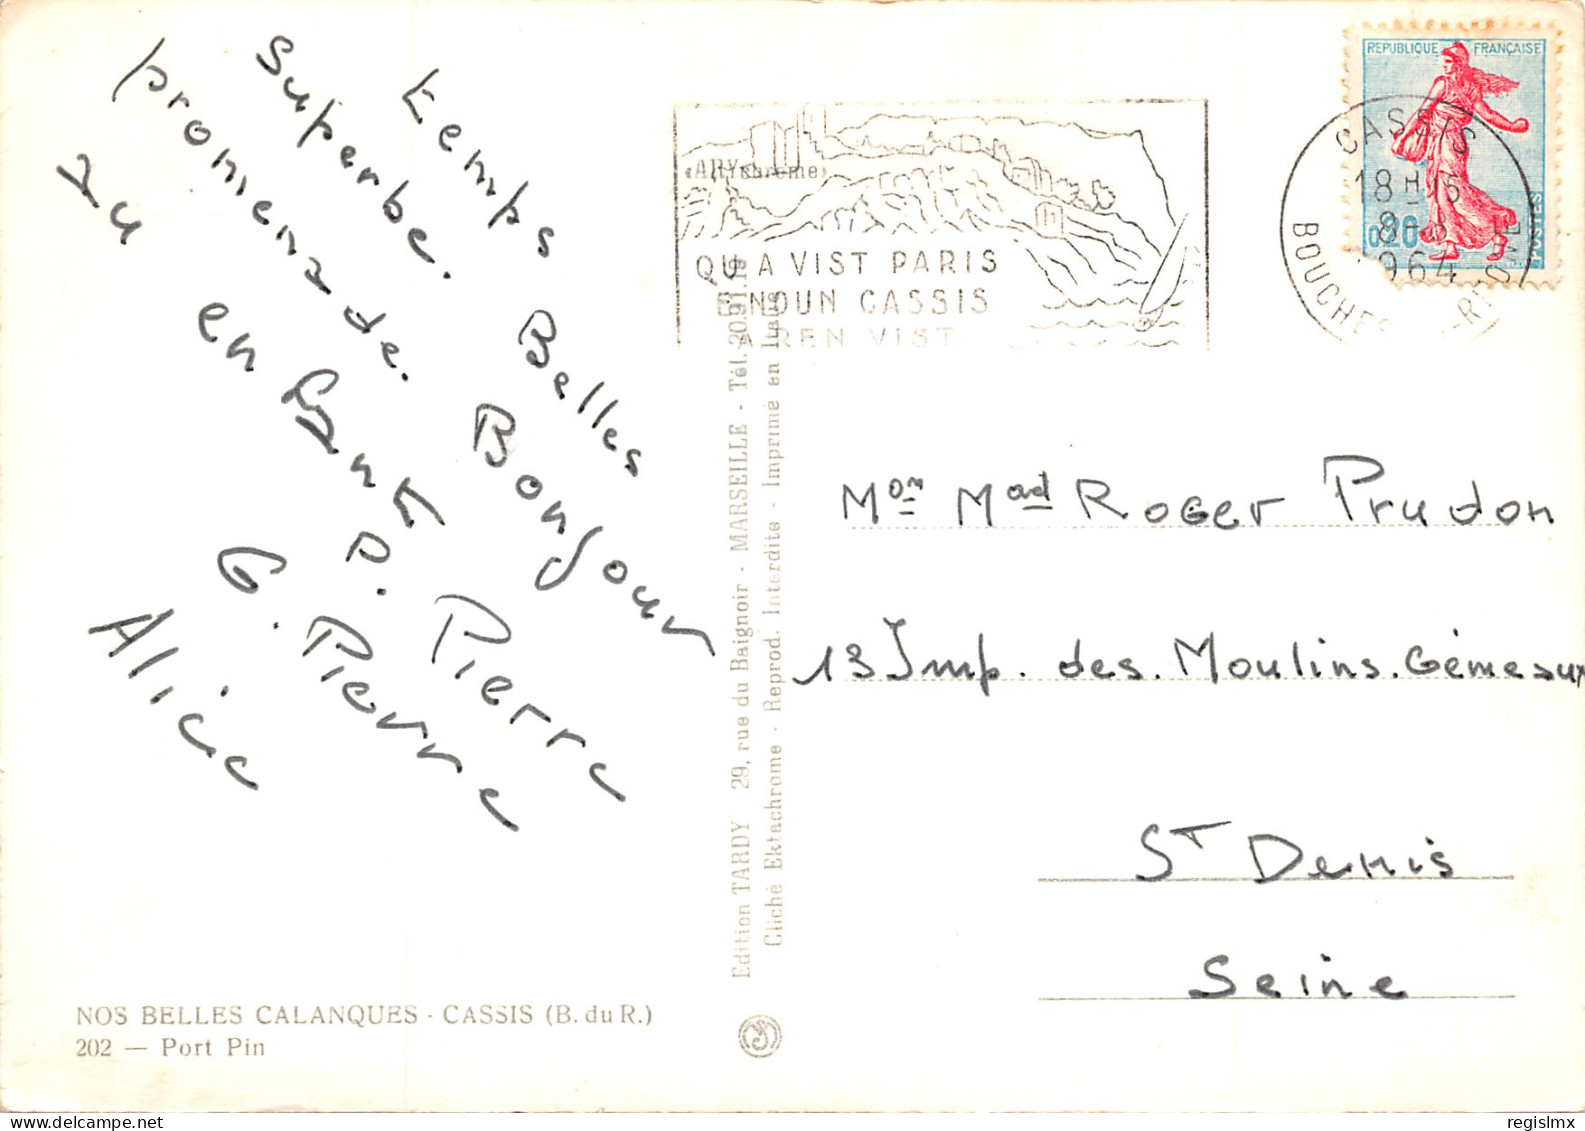 Temps
superbe. Belles
promenade. Bonjour
du en P. Pierre
G. Pierre
Alice
«ARYchrome»
QU A VIST PARIS
E NOUN CASSIS
A REN VIST
REPUBLIQUE FRANÇAISE
0,20
CASSIS
18 H 15
8 - 
1964
BOUCHES - RHONE
Mon Mad Roger Prudon
13 Imp. des. Moulins. Gémeaux
St Denis
Seine
Edition TARDY 29, rue du Baignoir - MARSEILLE - Tél. 20.91.19
Cliché Ektachrome - Reprod. Interdite - Imprimé en Italie
NOS BELLES CALANQUES - CASSIS (B. du R.)
202 — Port Pin
regislmx